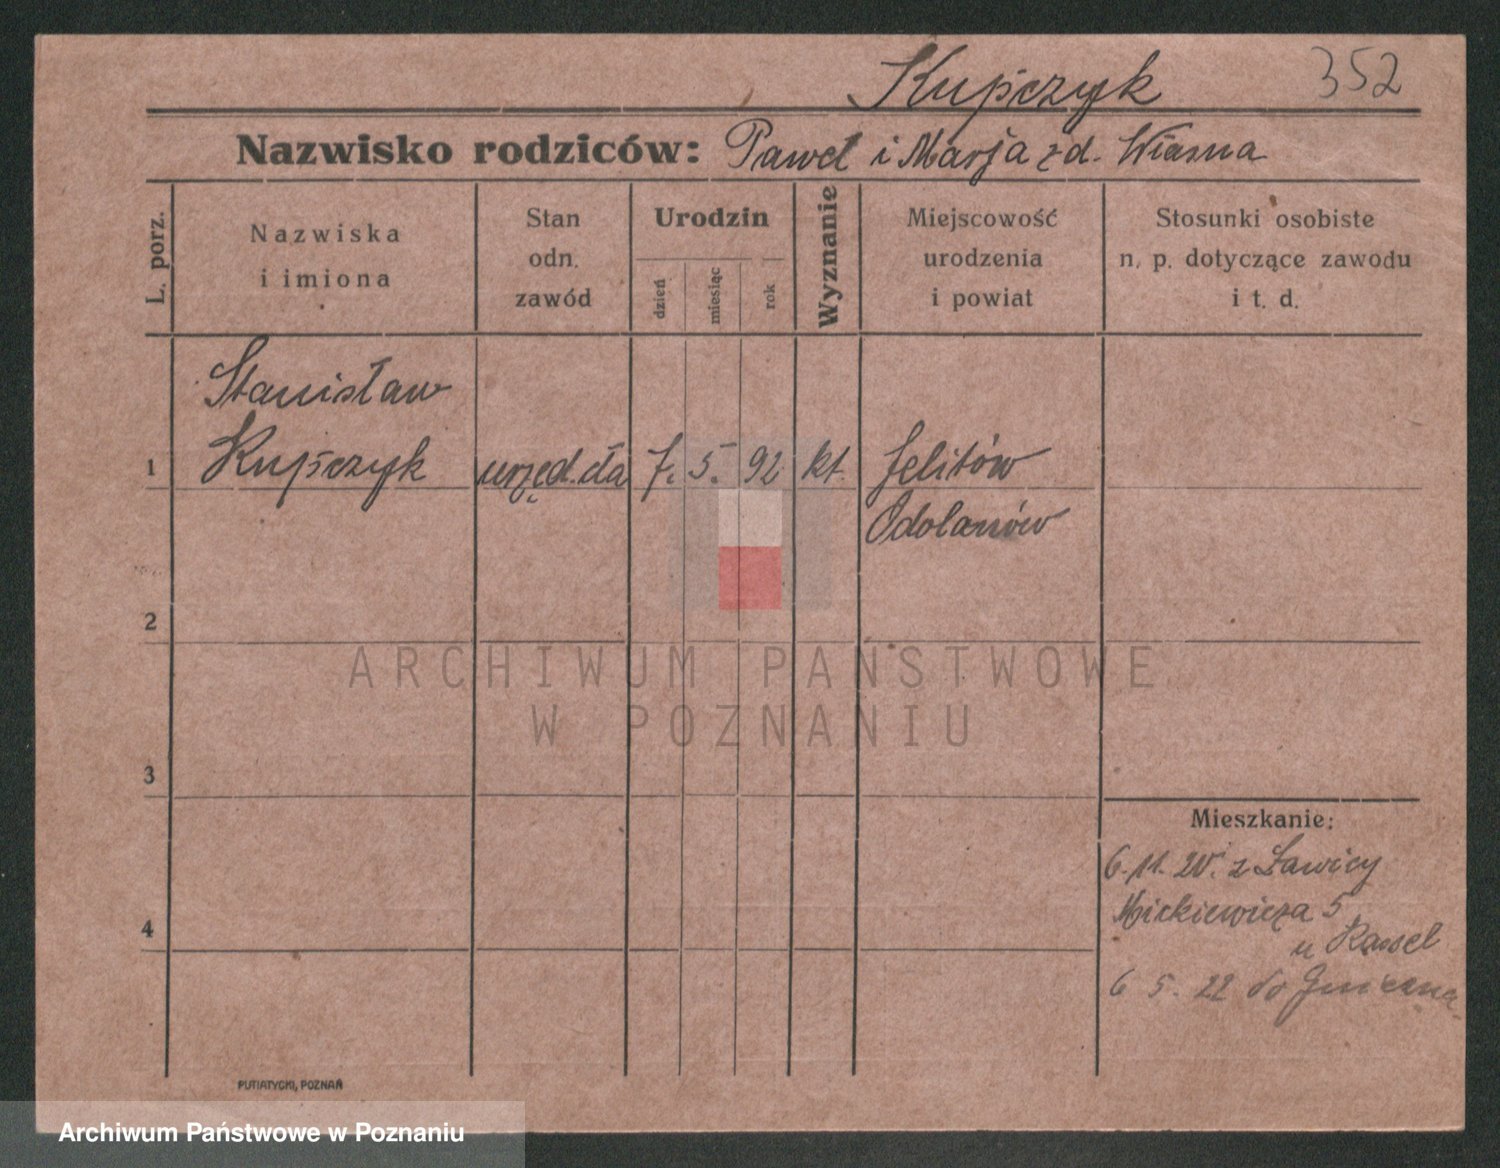 Kupczyk 352
Nazwisko rodziców: Paweł i Marja z d. Wiasna
L. porz.
Nazwiska
i imiona
Stan
odn.
zawód
Urodzin
dzień
miesiąc
rok
Wyznanie
Miejscowość
urodzenia
i powiat
Stosunki osobiste
n. p. dotyczące zawodu
i t. d.
Stanisław
1 Kupczyk urzęd. 7. 5. 92 kt. Jelitów
Odolanów
2
ARCHIWUM PAŃSTWOWE
W POZNANIU
3
Mieszkanie:
6. 11. 20. z Ławicy
Mickiewicza 5
4
u Kassel
6 5. 22 do Gniezna
PUTIATYCKI, POZNAŃ
Archiwum Państwowe w Poznaniu